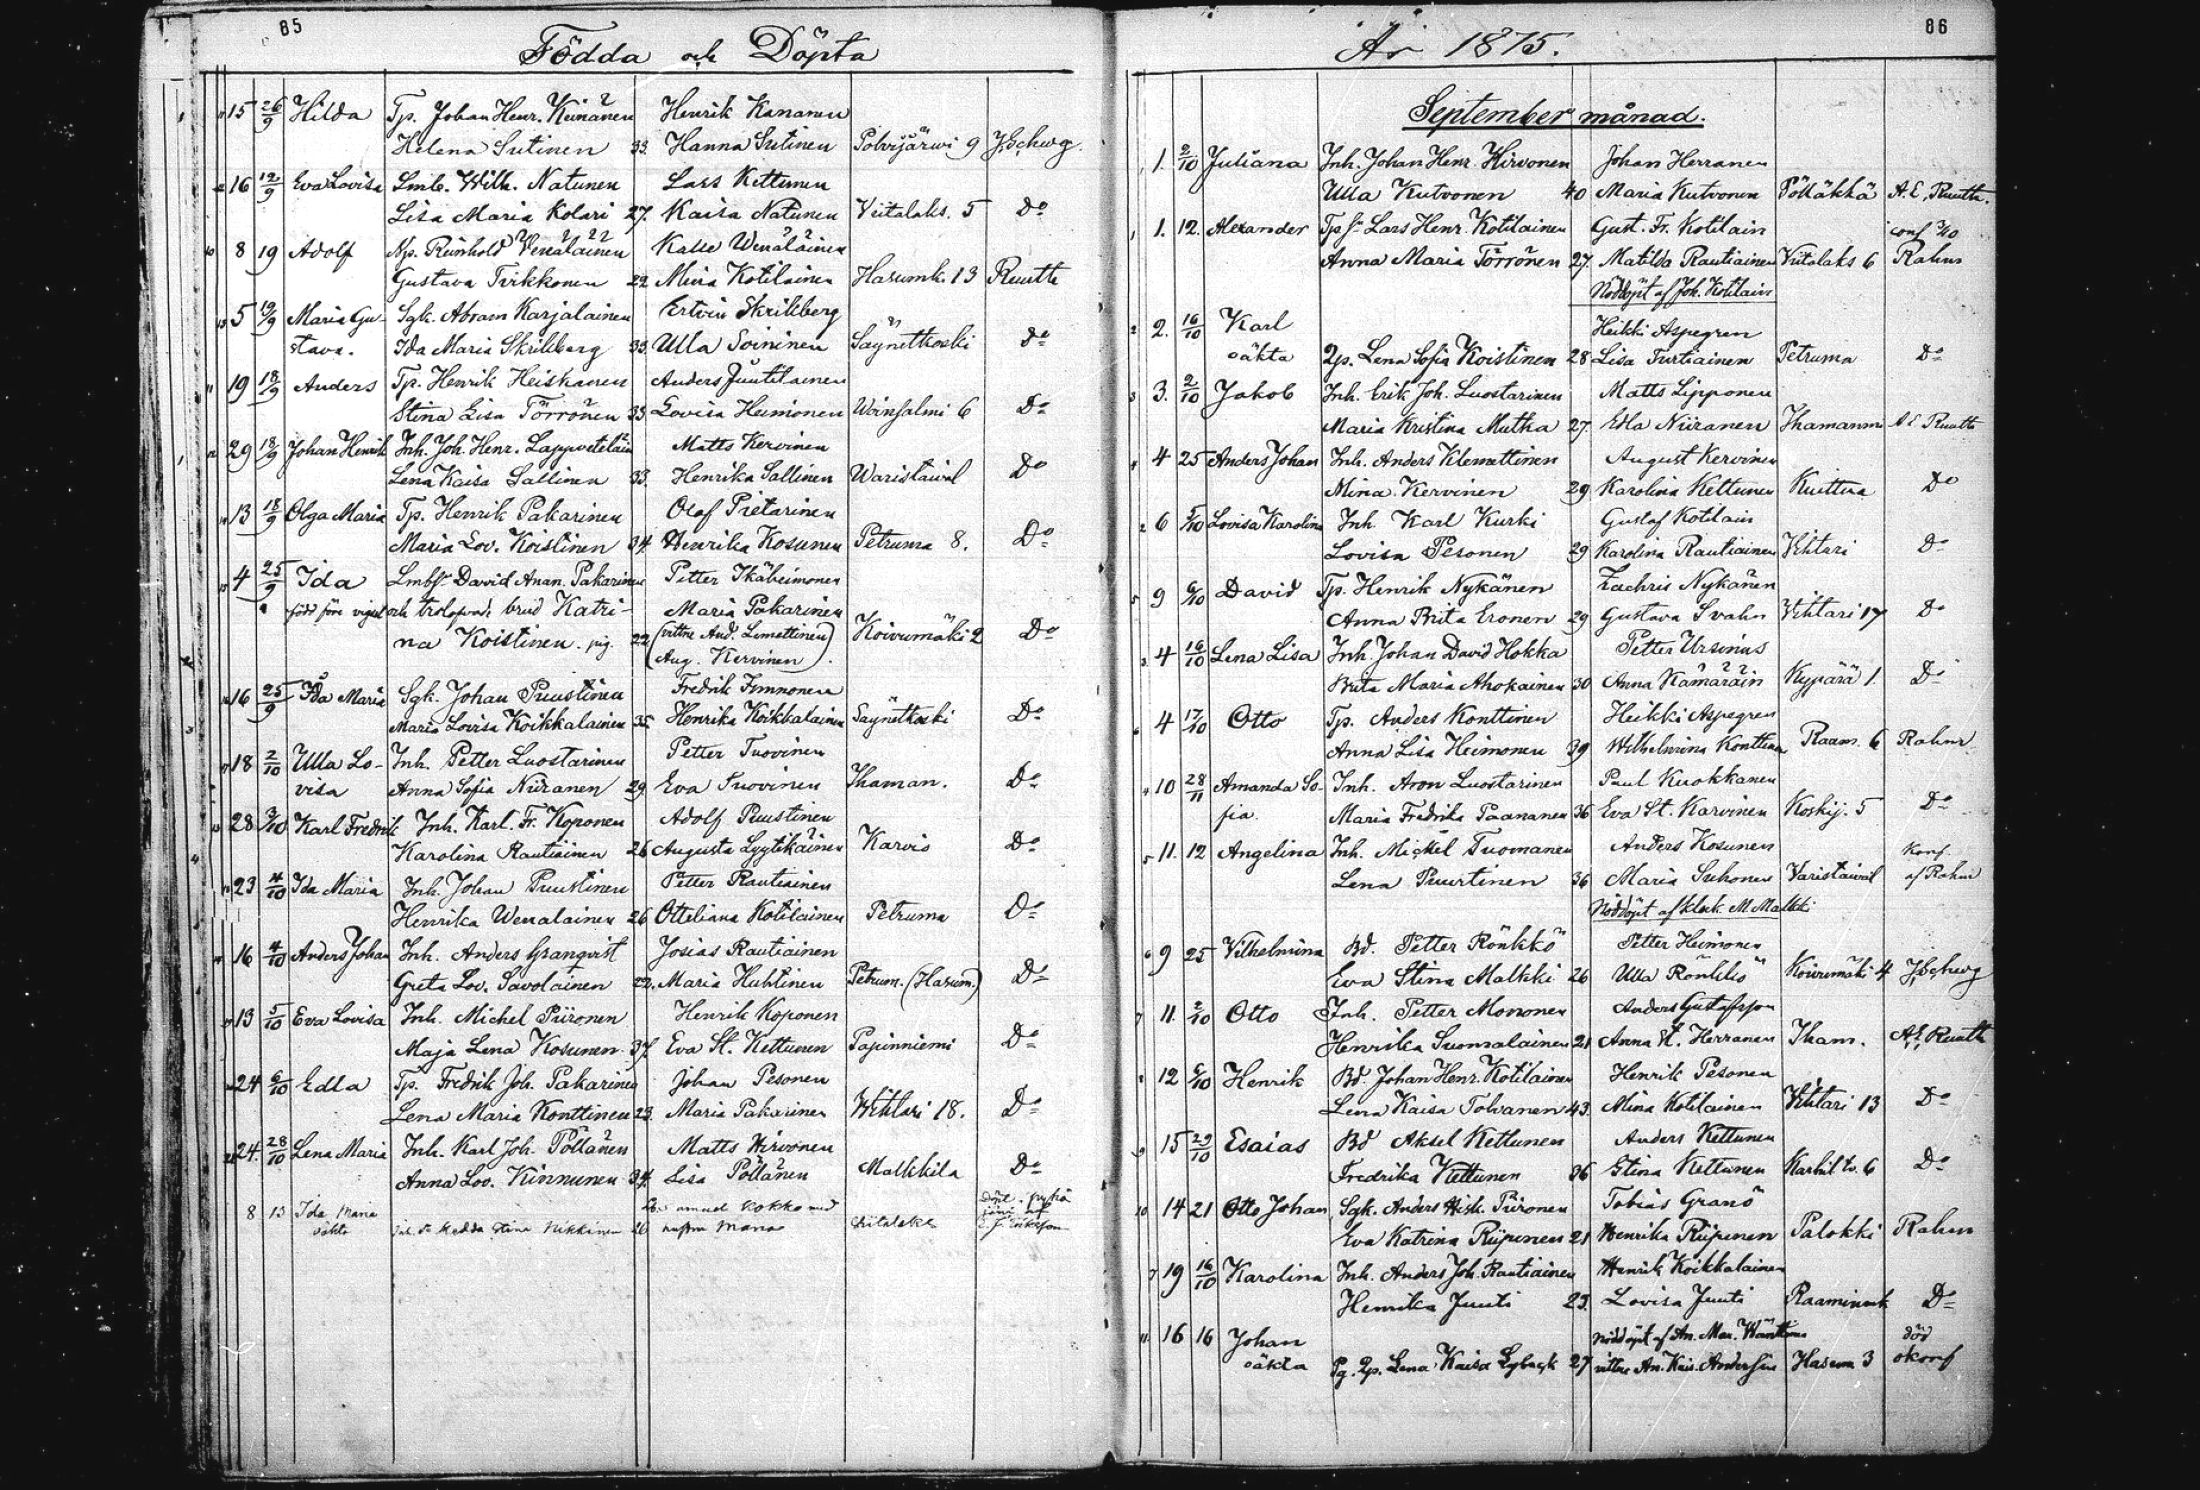 85
Födda och Döpta
15 26/9 Hilda Tp. Johan Henr. Keinänen Henrik Kananen
Helena Sutinen 33. Hanna Sutinen Polvijärwi 9 J Schwg.
16 12/9 Eva Lovisa Lmb. Wilh. Natunen Lars Kettunen
Lisa Maria Kolari 27. Kaisa Natunen Viitalaks. 5 Do
8 19 Adolf Np. Reinhold Venäläinen Kalle Wenäläinen
Gustava Tirkkonen 22 Mina Kotilainen Hasumk. 13 Ruuth
5 19/9 Maria Gu- Sgk. Abram Karjalainen Ertvin Skrikberg
stava. Ida Maria Skrikberg 33. Ulla Soininen Säynetkoski Do
19 18/9 Anders Tp. Henrik Heiskanen Anders Juutilainen
Stina Lisa Törrönen 33 Lovisa Heimonen Woinsalmi 6 Do
29 18/9 Johan Henrik Inh. Joh. Henr. Lappveteläin Matts Kervinen
Lena Kaisa Sallinen 33. Henrika Sallinen Waristaival Do
13 18/9 Olga Maria Tp. Henrik Pakarinen Olof Pietarinen
Maria Lov. Koistinen 34. Henrika Kosunen Petruma 8. Do
4 25/9 Ida Lmbs. David Anan. Pakarinen Petter Ikäheimonen
född före vigsel och trolofvad. brud Katri- Maria Pakarinen
na Koistinen. pig. 22 (vittne And. Limettinen) Koivumäki 2 Do
Aug. Kervinen).
16 25/9 Ida Maria Sgk. Johan Puustinen Fredrik Immonen
Maria Lovisa Koikkalainen 35. Henrika Koikkalainen Säynetkoski Do
18 2/10 Ulla Lo- Inh. Petter Luostarinen Petter Tuovinen
visa Anna Sofia Niiranen 29. Eva Tuovinen Ihaman. Do
28 3/10 Karl Fredrik Inh. Karl. Fr. Koponen Adolf Puustinen
Karolina Rautiainen 26 Augusta Lyytikäinen Karvio Do
23 4/10 Ida Maria Inh. Johan Puustinen Petter Rautiainen
Henrika Wenalainen 26 Otteliana Kotilainen Petruma Do
16 4/10 Anders Johan Inh. Anders Granqvist Josias Rautiainen
Greta Lov. Savolainen 22. Maria Huhtinen Petrum. (Hasum.) Do
13 5/10 Eva Lovisa Inh. Michel Piironen Henrik Koponen
Maja Lena Kosunen 37. Eva St. Kettunen Papinniemi Do
24 6/10 Edla Tp. Fredrik Joh. Pakarinen Johan Pesonen
Lena Maria Konttinen 23. Maria Pakarinen Wihtari 18. Do
24. 28/10 Lena Maria Inh. Karl Joh. Pöllänen Matts Hirvonen
Anna Lov. Kinnunen 34. Lisa Pöllänen Malkkila Do
8 13 Ida Maria amuel Kokko med
oäkta Hedda Stina Nikkinen 26 hustru Maria Viitalaks
86
År 1875.
September månad.
1. 2/10 Juliana Inh. Johan Henr. Hirvonen Johan Herranen
Ulla Kutvonen 40 Maria Kutvonen Pölläkkä A. E. Ruuth.
1. 12. Alexander Tp Sr Lars Henr. Kotilainen Gust. Fr. Kotilain conf 3/10
Anna Maria Törrönen 27. Matilda Rautiainen Viitalaks 6 Rahm
Nöddöpt af Joh. Kotilain
2. 16/10 Karl Heikki Aspegren
oäkta Qp. Lena Sofia Koistinen 28 Lisa Turtiainen Petruma Do
3. 2/10 Jakob Inh. Erik Joh. Luostarinen Matts Lipponen
Maria Kristina Mutka 27. Edla Niiranen Ihamanni A E Ruuth
4 25 Anders Johan Inh. Anders Klemettinen August Kervinen
Mina Kervinen 29 Karolina Kettunen Kuittua Do
6 5/10 Lovisa Karolina Inh. Karl Kurki Gustaf Kotilain
Lovisa Pesonen 29 Karolina Rautiainen Vihtari Do
9 6/10 David Tp. Henrik Nykänen Zachris Nykänen
Anna Brita Eronen 29 Gustava Svahn Vihtari 17 Do
4 16/10 Lena Lisa Inh. Johan David Hokka Petter Ursinus
Brita Maria Ahokainen 30 Anna Kämäräin Kypärä 1. Do
4 17/10 Otto Tp. Anders Konttinen Heikki Aspegren
Anna Lisa Heimonen 39 Wilhelmina Konttinen Raam. 6 Rahm
10 28/11 Amanda So- Inh. Aron Luostarinen Paul Kuokkanen
fia. Maria Fredrika Paananen 36 Eva St. Karvinen Koskij. 5 Do
11. 12 Angelina Inh. Mickel Tuomanen Anders Kosunen Konf.
Lena Puurtinen 36 Maria Suhonen Varistaival af Rahm
Nöddöpt af klock. M Malkki
9 25 Vilhelmina Bd. Petter Rönkkö Petter Heimonen
Eva Stina Malkki 26 Ulla Rönkkö Koivumäki 4 J Schwg
11. 2/10 Otto Inh. Petter Mononen Anders Gustafsson
Henrika Suomalainen 21 Anna K. Herranen Iham. A E Ruuth
12 6/10 Henrik Bd. Johan Henr. Kotilainen Henrik Pesonen
Lena Kaisa Tolvanen 43. Mina Kotilainen Vihtari 13 Do
15 29/10 Esaias Bd Aksel Kettunen Anders Kettunen
Fredrika Kettunen 36 Stina Kettunen 6 Do
14 21 Otto Johan Sgk. Anders Hisk. Piironen Tobias Granö
Eva Katrina Riipinen 21 Henrika Riipinen Palokki Rahm
19 16/10 Karolina Inh. Anders Joh. Rautiainen Henrik Koikkalainen
Henrika Juuti 23. Lovisa Juuti Raaminmk Do
16 16 Johan Nöddöpt af An. Mar. död
oäkta Pg. Qp. Lena Kaisa Lyback 27 vittne An. Kais. Hasum 3 okonf